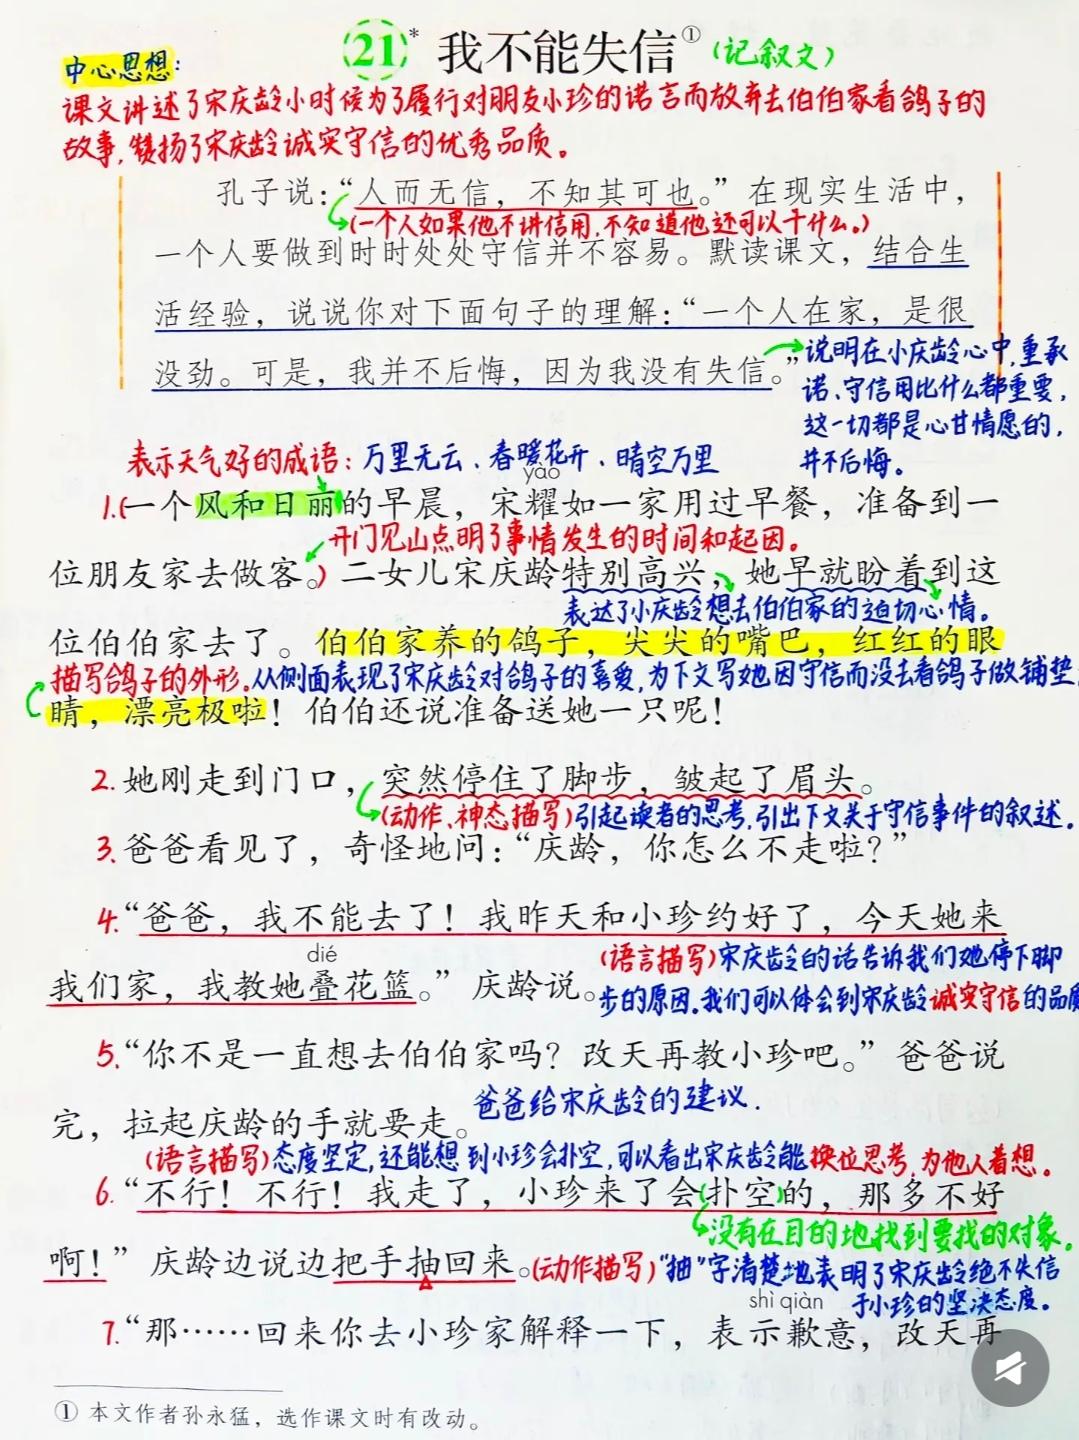 21* 我不能失信①（记叙文）
中心思想：
课文讲述了宋庆龄小时候为了履行对朋友小珍的诺言而放弃去伯伯家看鸽子的
故事，赞扬了宋庆龄诚实守信的优秀品质。
孔子说：“人而无信，不知其可也。”在现实生活中，
（一个人如果他不讲信用，不知道他还可以干什么。）
一个人要做到时时处处守信并不容易。默读课文，结合生
活经验，说说你对下面句子的理解：“一个人在家，是很
没劲。可是，我并不后悔，因为我没有失信。”
说明在小庆龄心中，重承
诺、守信用比什么都重要，
这一切都是心甘情愿的，
并不后悔。
表示天气好的成语：万里无云、春暖花开、晴空万里
yào
1.（一个风和日丽的早晨，宋耀如一家用过早餐，准备到一
开门见山点明了事情发生的时间和起因。
位朋友家去做客。）二女儿宋庆龄特别高兴，她早就盼着到这
表达了小庆龄想去伯伯家的迫切心情。
位伯伯家去了。伯伯家养的鸽子，尖尖的嘴巴，红红的眼
描写鸽子的外形。从侧面表现了宋庆龄对鸽子的喜爱，为下文写她因守信而没去看鸽子做铺垫
睛，漂亮极啦！伯伯还说准备送她一只呢！
2. 她刚走到门口，突然停住了脚步，皱起了眉头。
（动作、神态描写）引起读者的思考，引出下文关于守信事件的叙述。
3. 爸爸看见了，奇怪地问：“庆龄，你怎么不走啦？”
4. “爸爸，我不能去了！我昨天和小珍约好了，今天她来
dié
（语言描写）宋庆龄的话告诉我们她停下脚
我们家，我教她叠花篮。”庆龄说。
步的原因。我们可以体会到宋庆龄诚实守信的品质
5. “你不是一直想去伯伯家吗？改天再教小珍吧。”爸爸说
完，拉起庆龄的手就要走。
爸爸给宋庆龄的建议.
（语言描写）态度坚定，还能想到小珍会扑空，可以看出宋庆龄能换位思考，为他人着想。
6. “不行！不行！我走了，小珍来了会扑空的，那多不好
没有在目的地找到要找的对象。
啊！”庆龄边说边把手抽回来。
（动作描写）“抽”字清楚地表明了宋庆龄绝不失信
于小珍的坚决态度。
shì qiàn
7. “那……回来你去小珍家解释一下，表示歉意，改天再
① 本文作者孙永猛，选作课文时有改动。